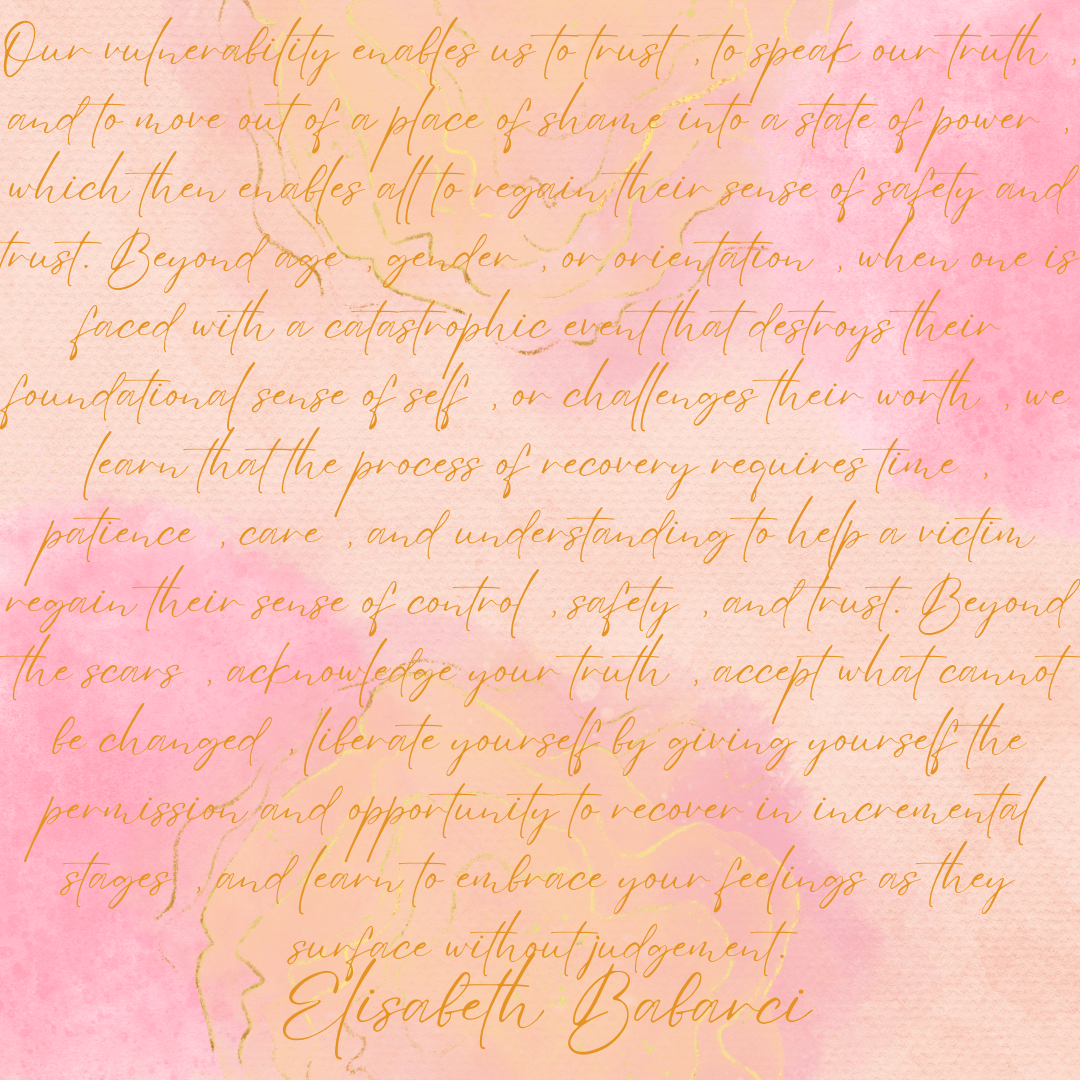 Our vulnerability enables us to trust , to speak our truth ,
and to move out of a place of shame into a state of power ,
which then enables all to regain their sense of safety and
trust. Beyond age , gender , or orientation , when one is
faced with a catastrophic event that destroys their
foundational sense of self , or challenges their worth , we
learn that the process of recovery requires time ,
patience , care , and understanding to help a victim
regain their sense of control , safety , and trust. Beyond
the scars , acknowledge your truth , accept what cannot
be changed , liberate yourself by giving yourself the
permission and opportunity to recover in incremental
stages , and learn to embrace your feelings as they
surface without judgement.
Elisabeth Babarci